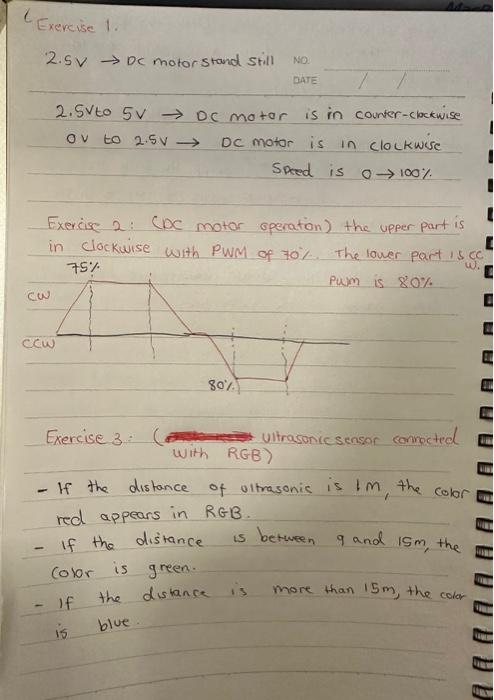 Exercise 1.
2.5V → DC motor stand still NO.
DATE / /
2.5V to 5V → DC motor is in counter-clockwise
0V to 2.5V → DC motor is in clockwise
Speed is 0 → 100%
Exercise 2: (DC motor operation) the upper part is
in clockwise with PWM of 70%. The lower part is cc
w.
75%
Pwm is 80%
CW
CCW
80%
Exercise 3: ( ultrasonic sensor connected
with RGB)
- If the distance of ultrasonic is 1m, the color
red appears in RGB.
- If the distance is between 9 and 15m, the
color is green.
- If the distance is more than 15m, the color
is blue.